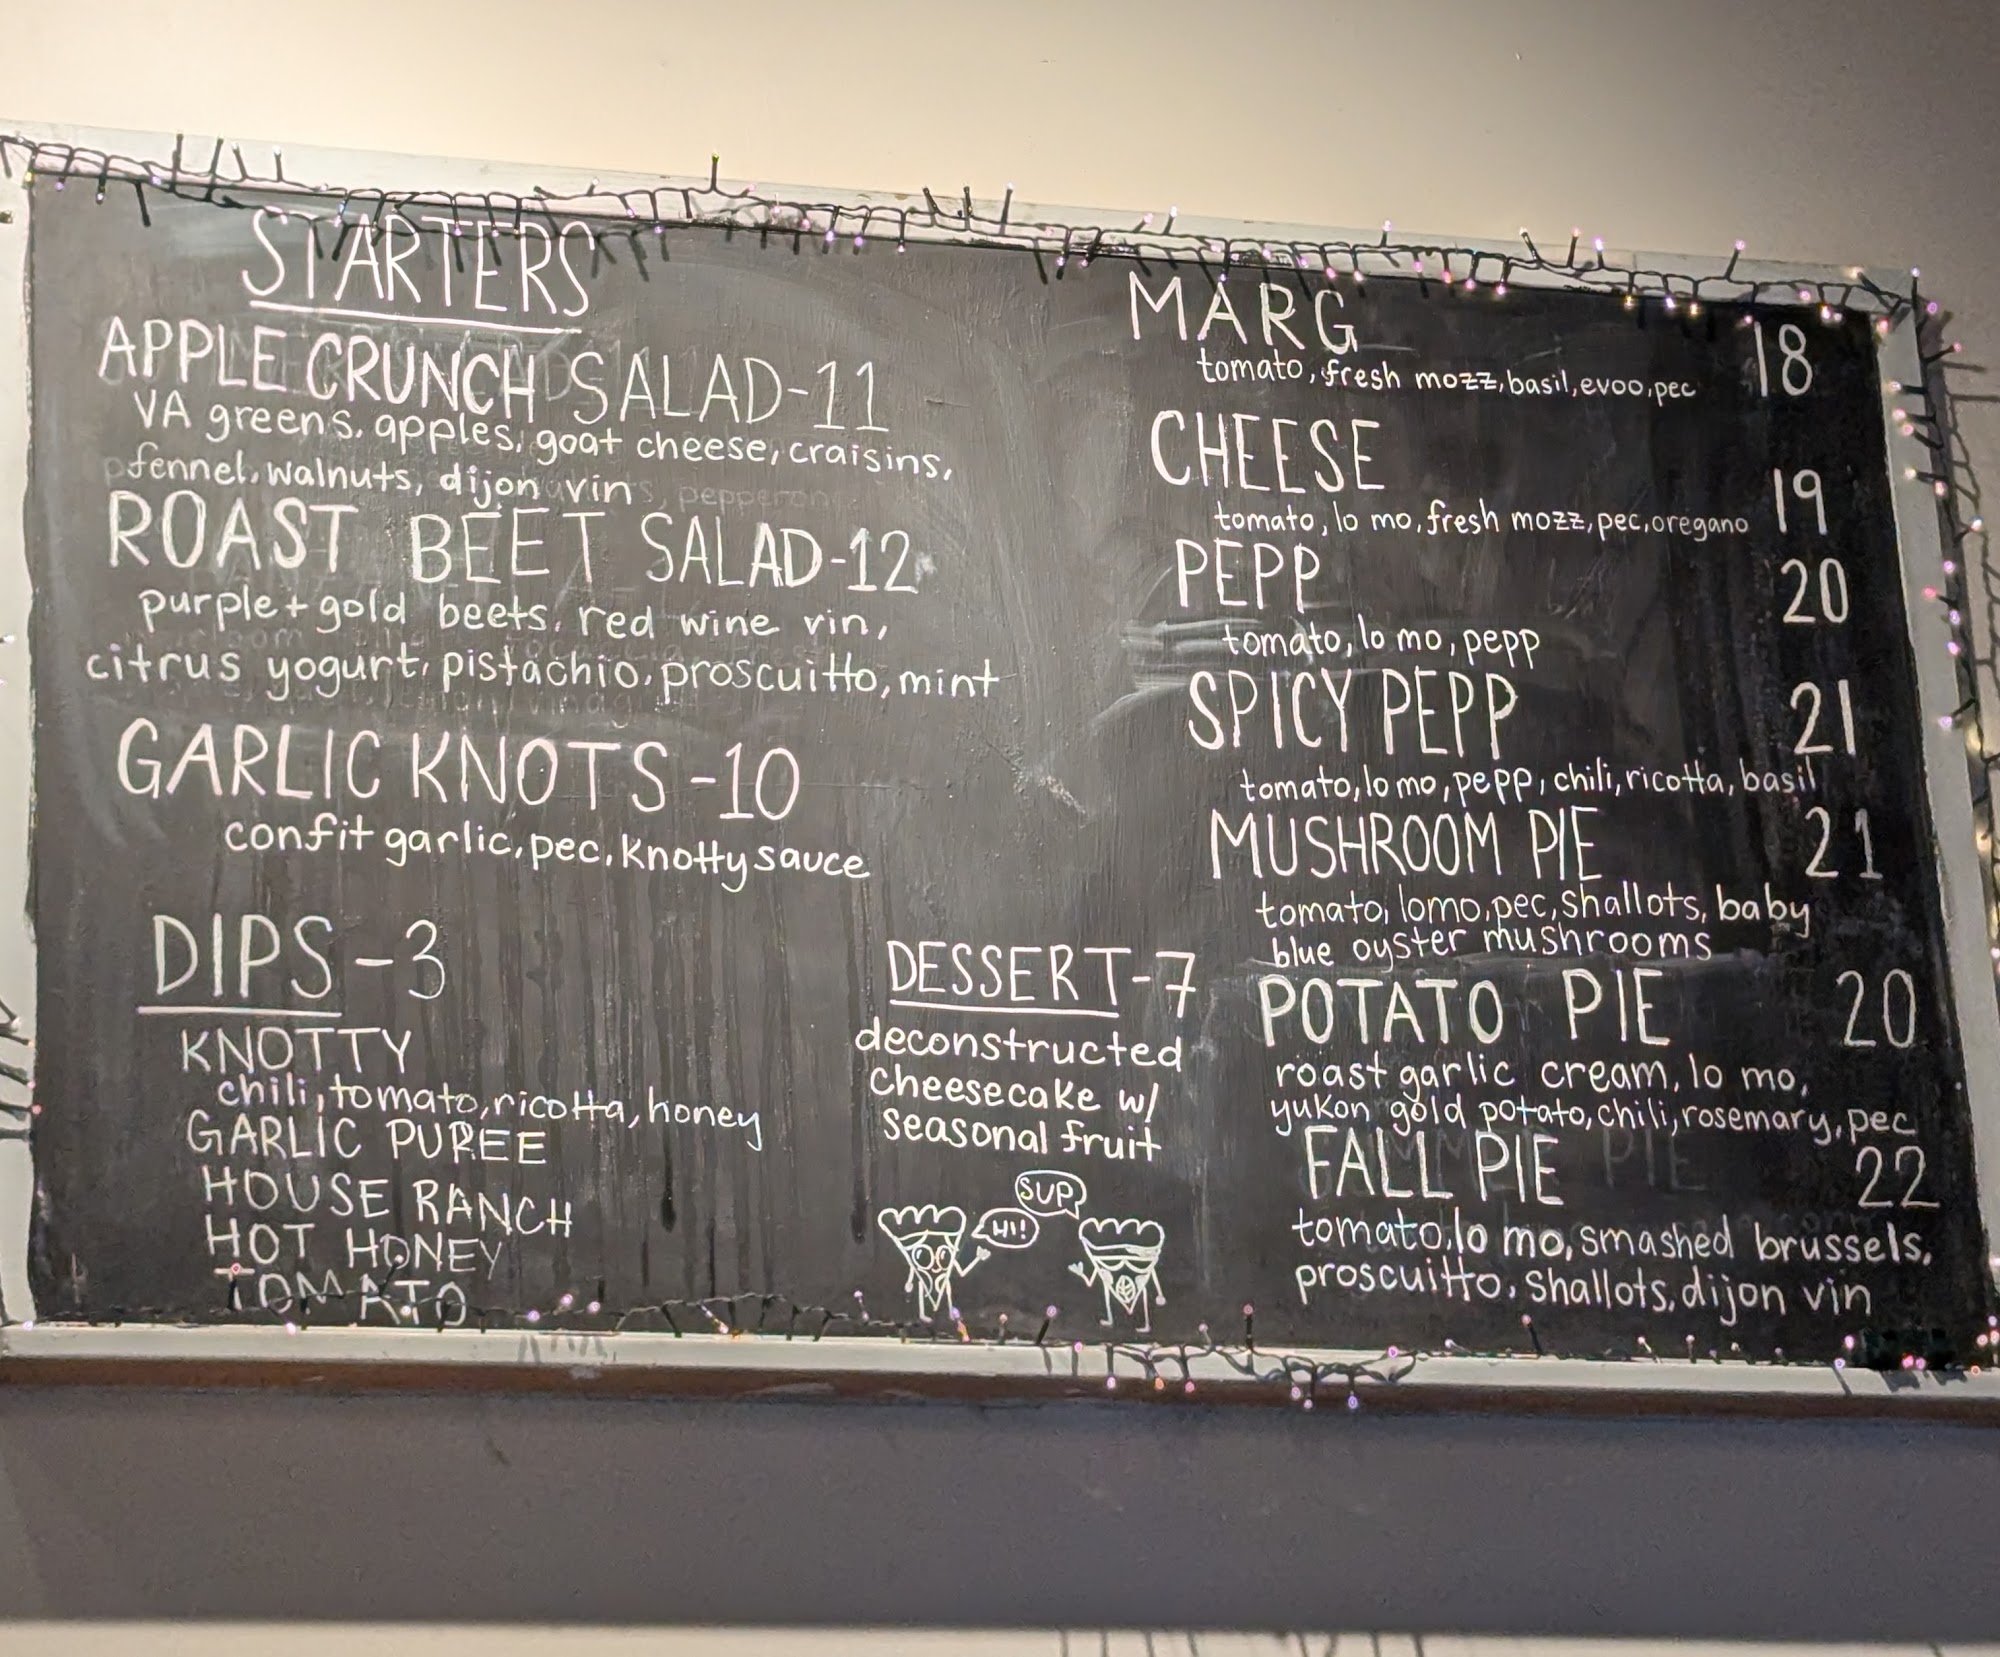 STARTERS
APPLE CRUNCH SALAD-11
VA greens, apples, goat cheese, craisins,
fennel, walnuts, dijon vin
ROAST BEET SALAD-12
purple + gold beets, red wine vin,
citrus yogurt, pistachio, proscuitto, mint
GARLIC KNOTS-10
confit garlic, pec, knotty sauce
DIPS-3
KNOTTY
chili, tomato, ricotta, honey
GARLIC PUREE
HOUSE RANCH
HOT HONEY
TOMATO
DESSERT-7
deconstructed
cheesecake w/
seasonal fruit
SUP
HI!
MARG 18
tomato, fresh mozz, basil, evoo, pec
CHEESE 19
tomato, lo mo, fresh mozz, pec, oregano
PEPP 20
tomato, lo mo, pepp
SPICY PEPP 21
tomato, lo mo, pepp, chili, ricotta, basil
MUSHROOM PIE 21
tomato, lo mo, pec, shallots, baby
blue oyster mushrooms
POTATO PIE 20
roast garlic cream, lo mo,
yukon gold potato, chili, rosemary, pec
FALL PIE 22
tomato, lo mo, smashed brussels,
proscuitto, shallots, dijon vin